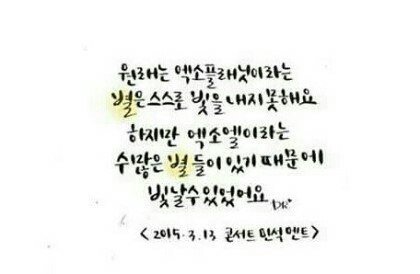 원래는 엑소플래닛이라는
별은 스스로 빛을 내지 못해요
하지만 엑소엘이라는
수많은 별들이 있기 때문에
빛날 수 있었어요
DK*
<2015.3.13 콘서트 민석멘트>